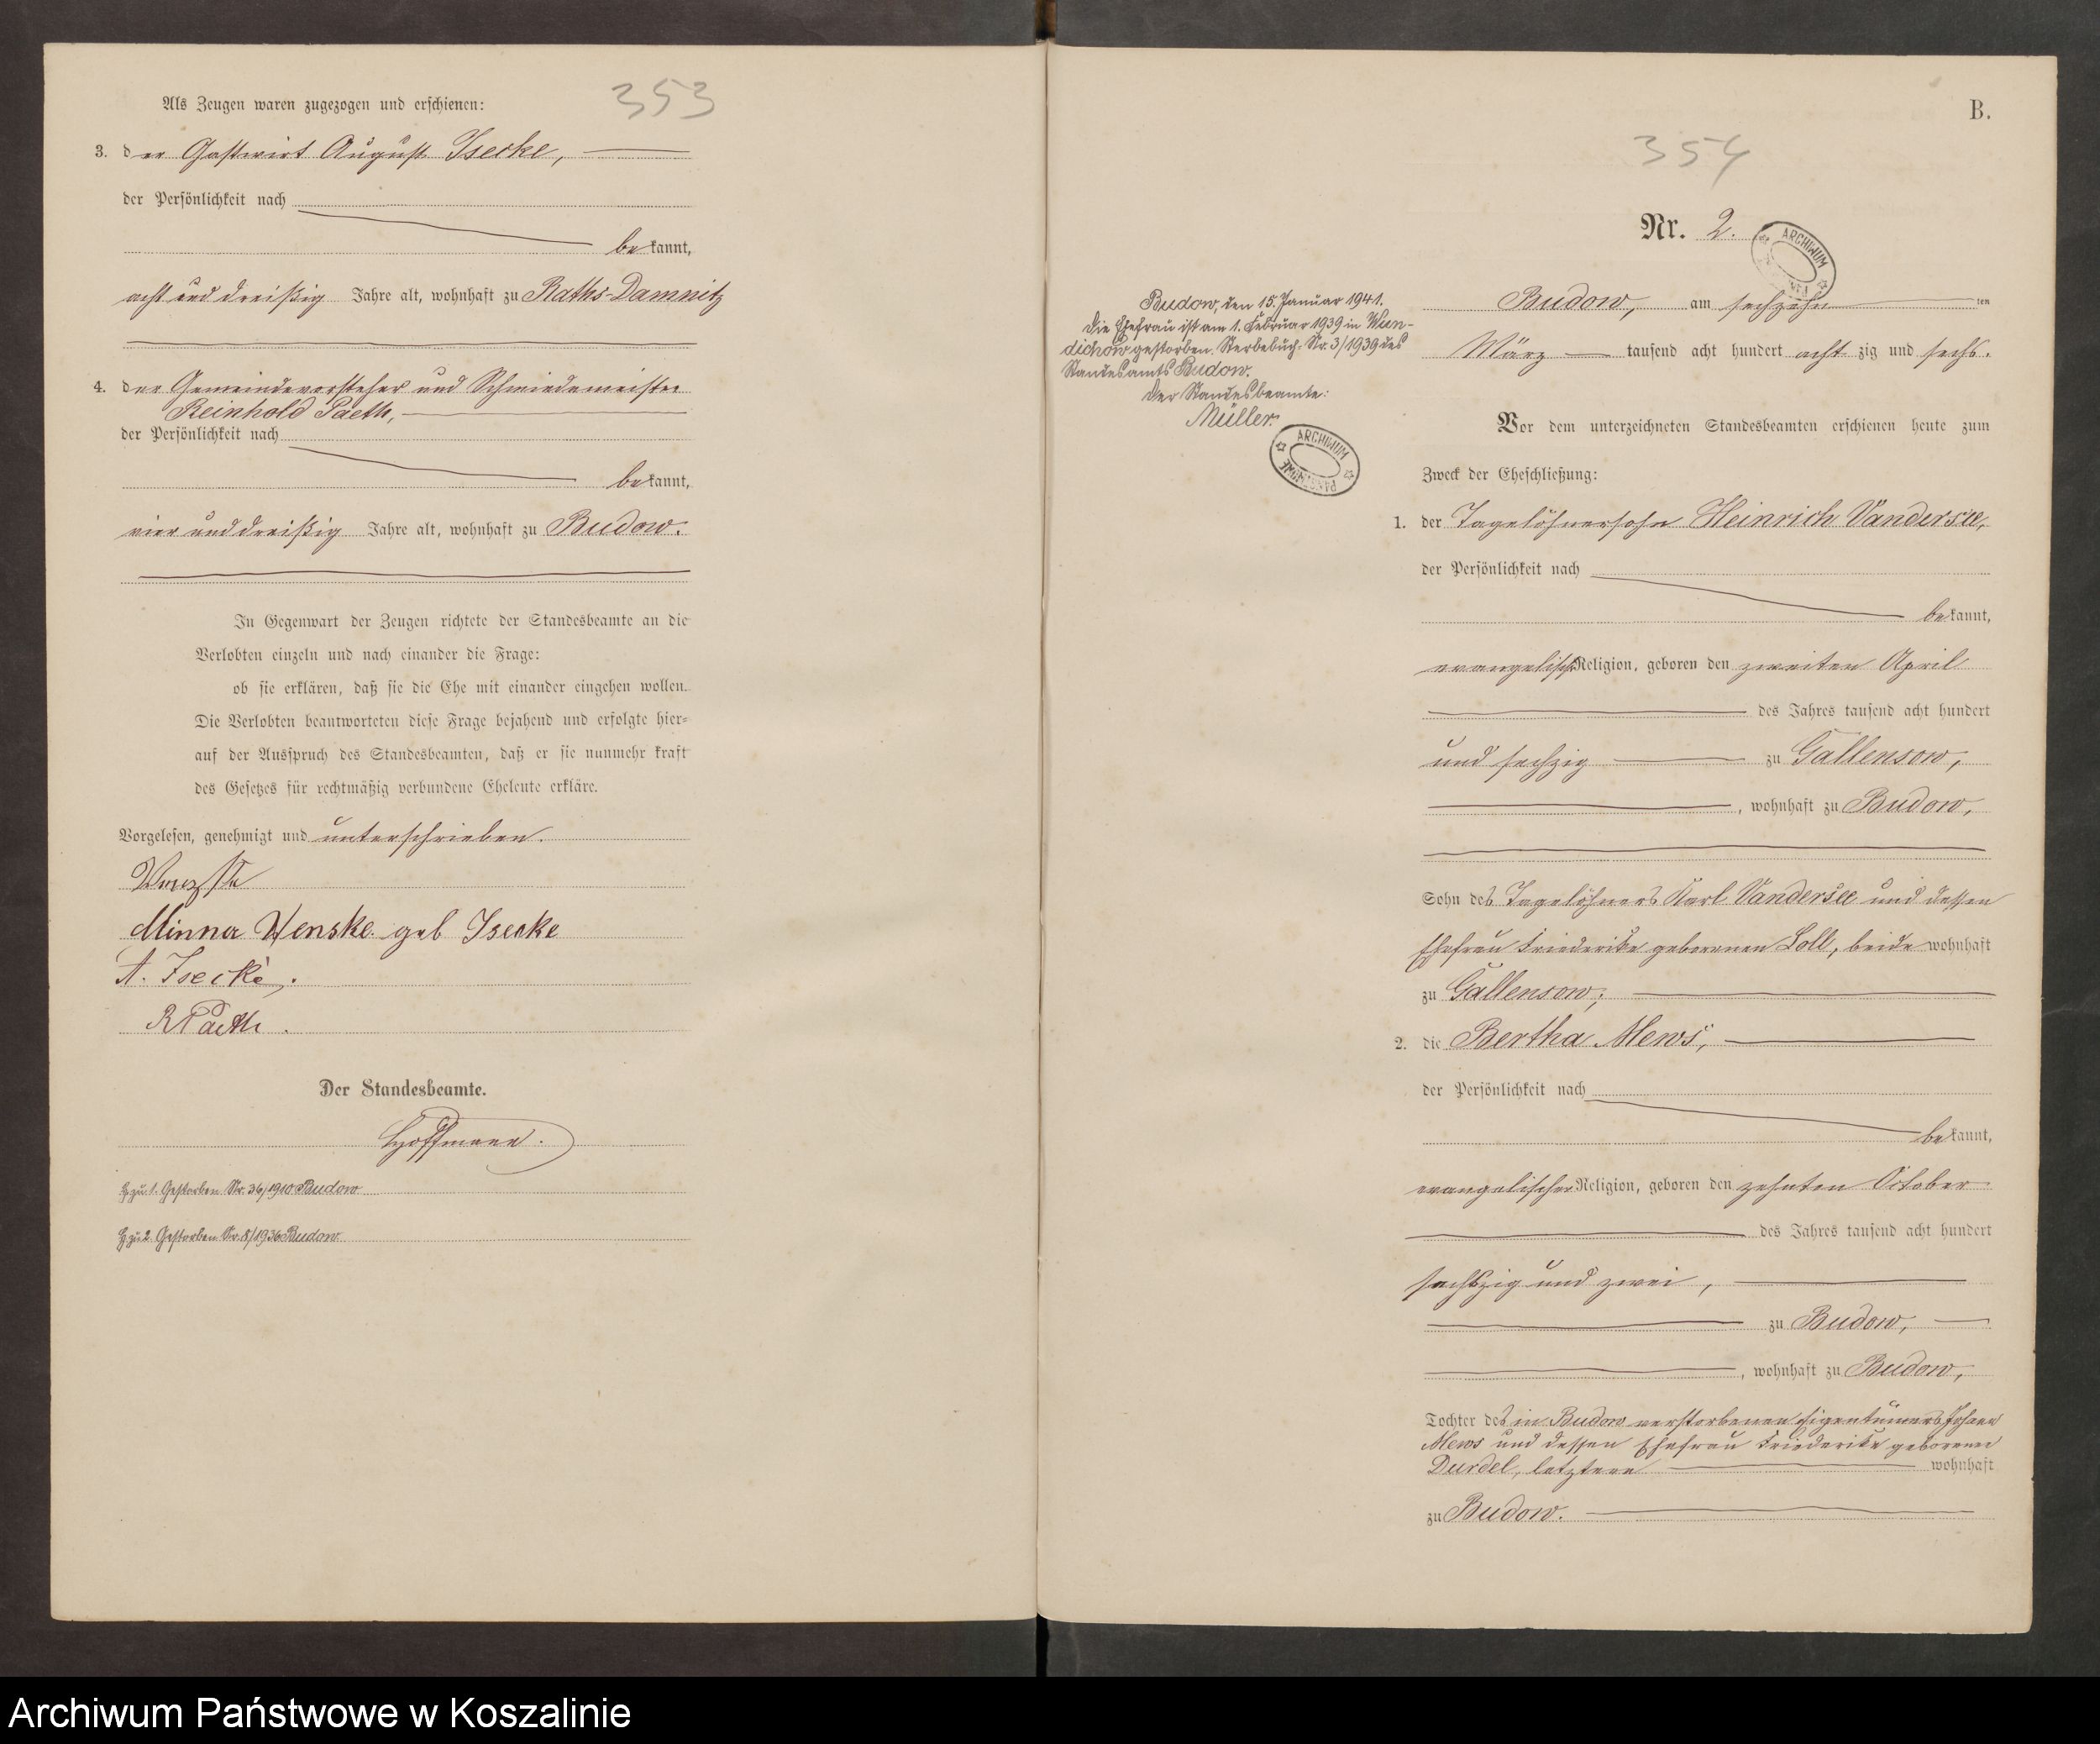 353
Als Zeugen waren zugezogen und erschienen:
3. der Gastwirt August Isecke,
der Persönlichkeit nach
bekannt,
acht und dreißig Jahre alt, wohnhaft zu Raths-Damnitz
4. der Gemeindevorsteher und Schmiedemeister
Reinhold Paeth,
der Persönlichkeit nach
bekannt,
vier und dreißig Jahre alt, wohnhaft zu Budow.
In Gegenwart der Zeugen richtete der Standesbeamte an die
Verlobten einzeln und nach einander die Frage:
ob sie erklären, daß sie die Ehe mit einander eingehen wollen.
Die Verlobten beantworteten diese Frage bejahend und erfolgte hier-
auf der Ausspruch des Standesbeamten, daß er sie nunmehr kraft
des Gesetzes für rechtmäßig verbundene Eheleute erkläre.
Vorgelesen, genehmigt und unterschrieben.
Minna Wenske geb Isecke
A. Isecke.
R Paeth.
Der Standesbeamte.
Hoffmann.
H zu 1. Gestorben Nr. 36/1910 Budow
H zu 2. Gestorben Nr. 8/1936 Budow
B.
354
Nr. 2.
ARCHIWUM
Budow, am sechzehn ten
März tausend acht hundert acht zig und sechs.
Budow, den 15. Januar 1941.
Die Ehefrau ist am 1. Februar 1939 in Wun-
dichow gestorben. Sterbebuch Nr. 3/1939 des
Standesamts Budow.
Der Standesbeamte:
Müller.
ARCHIWUM PAŃSTWOWE
Vor dem unterzeichneten Standesbeamten erschienen heute zum
Zweck der Eheschließung:
1. der Tagelöhnersohn Heinrich Vandersee,
der Persönlichkeit nach
bekannt,
evangelisch Religion, geboren den zweiten April
des Jahres tausend acht hundert
und sechzig zu Gallensow,
, wohnhaft zu Budow,
Sohn des Tagelöhners Karl Vandersee und dessen
Ehefrau Friederike geborenen Loll, beide wohnhaft
zu Gallensow;
2. die Bertha Mews,
der Persönlichkeit nach
bekannt,
evangelischer Religion, geboren den zehnten October
des Jahres tausend acht hundert
sechszig und zwei,
zu Budow,
, wohnhaft zu Budow,
Tochter des in Budow verstorbenen Eigentümers Johann
Mews und dessen Ehefrau Friederike geborene
Durdel, letztere wohnhaft
zu Budow.
Archiwum Państwowe w Koszalinie